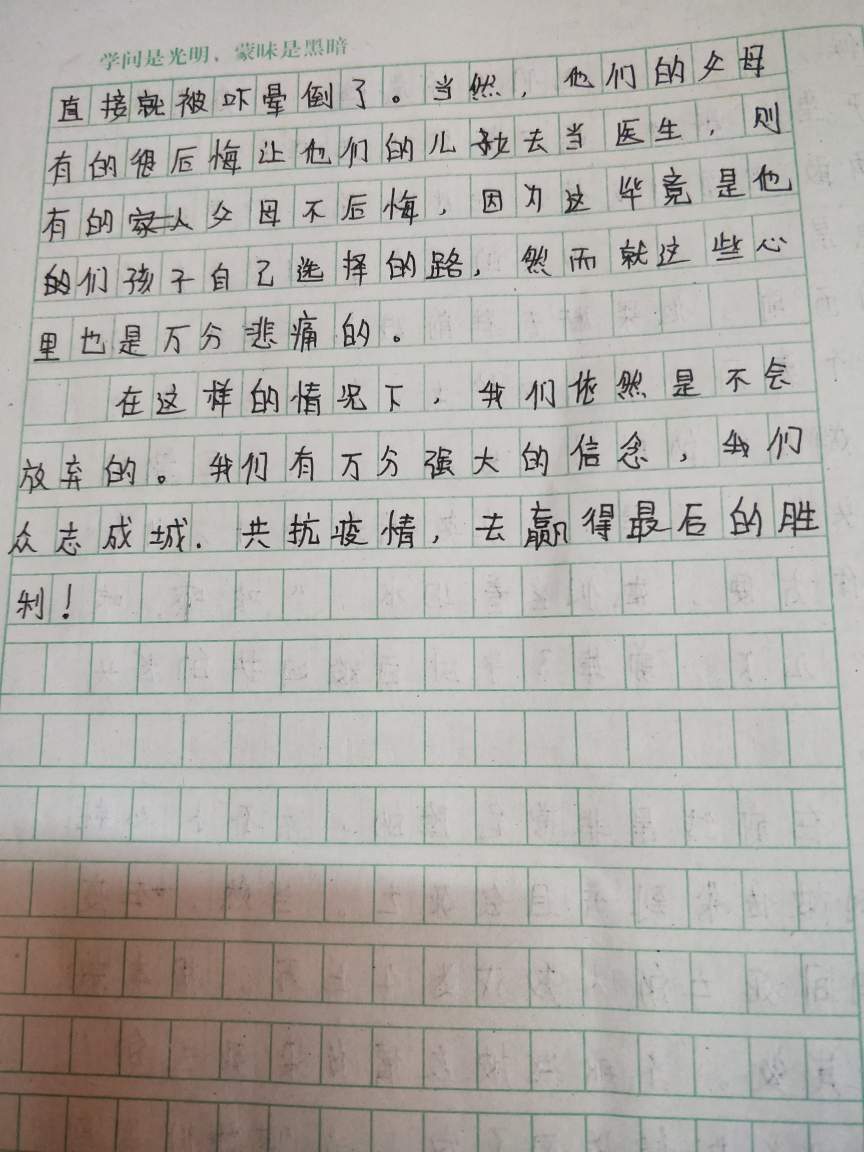 学问是光明，蒙昧是黑暗
直接就被吓晕倒了。当然，他们的父母
有的很后悔让他们的儿女去当医生，则
有的父母不后悔，因为这毕竟是他
的们孩子自己选择的路，然而就这些心
里也是万分悲痛的。
在这样的情况下，我们依然是不会
放弃的。我们有万分强大的信念，我们
众志成城．共抗疫情，去赢得最后的胜
利！